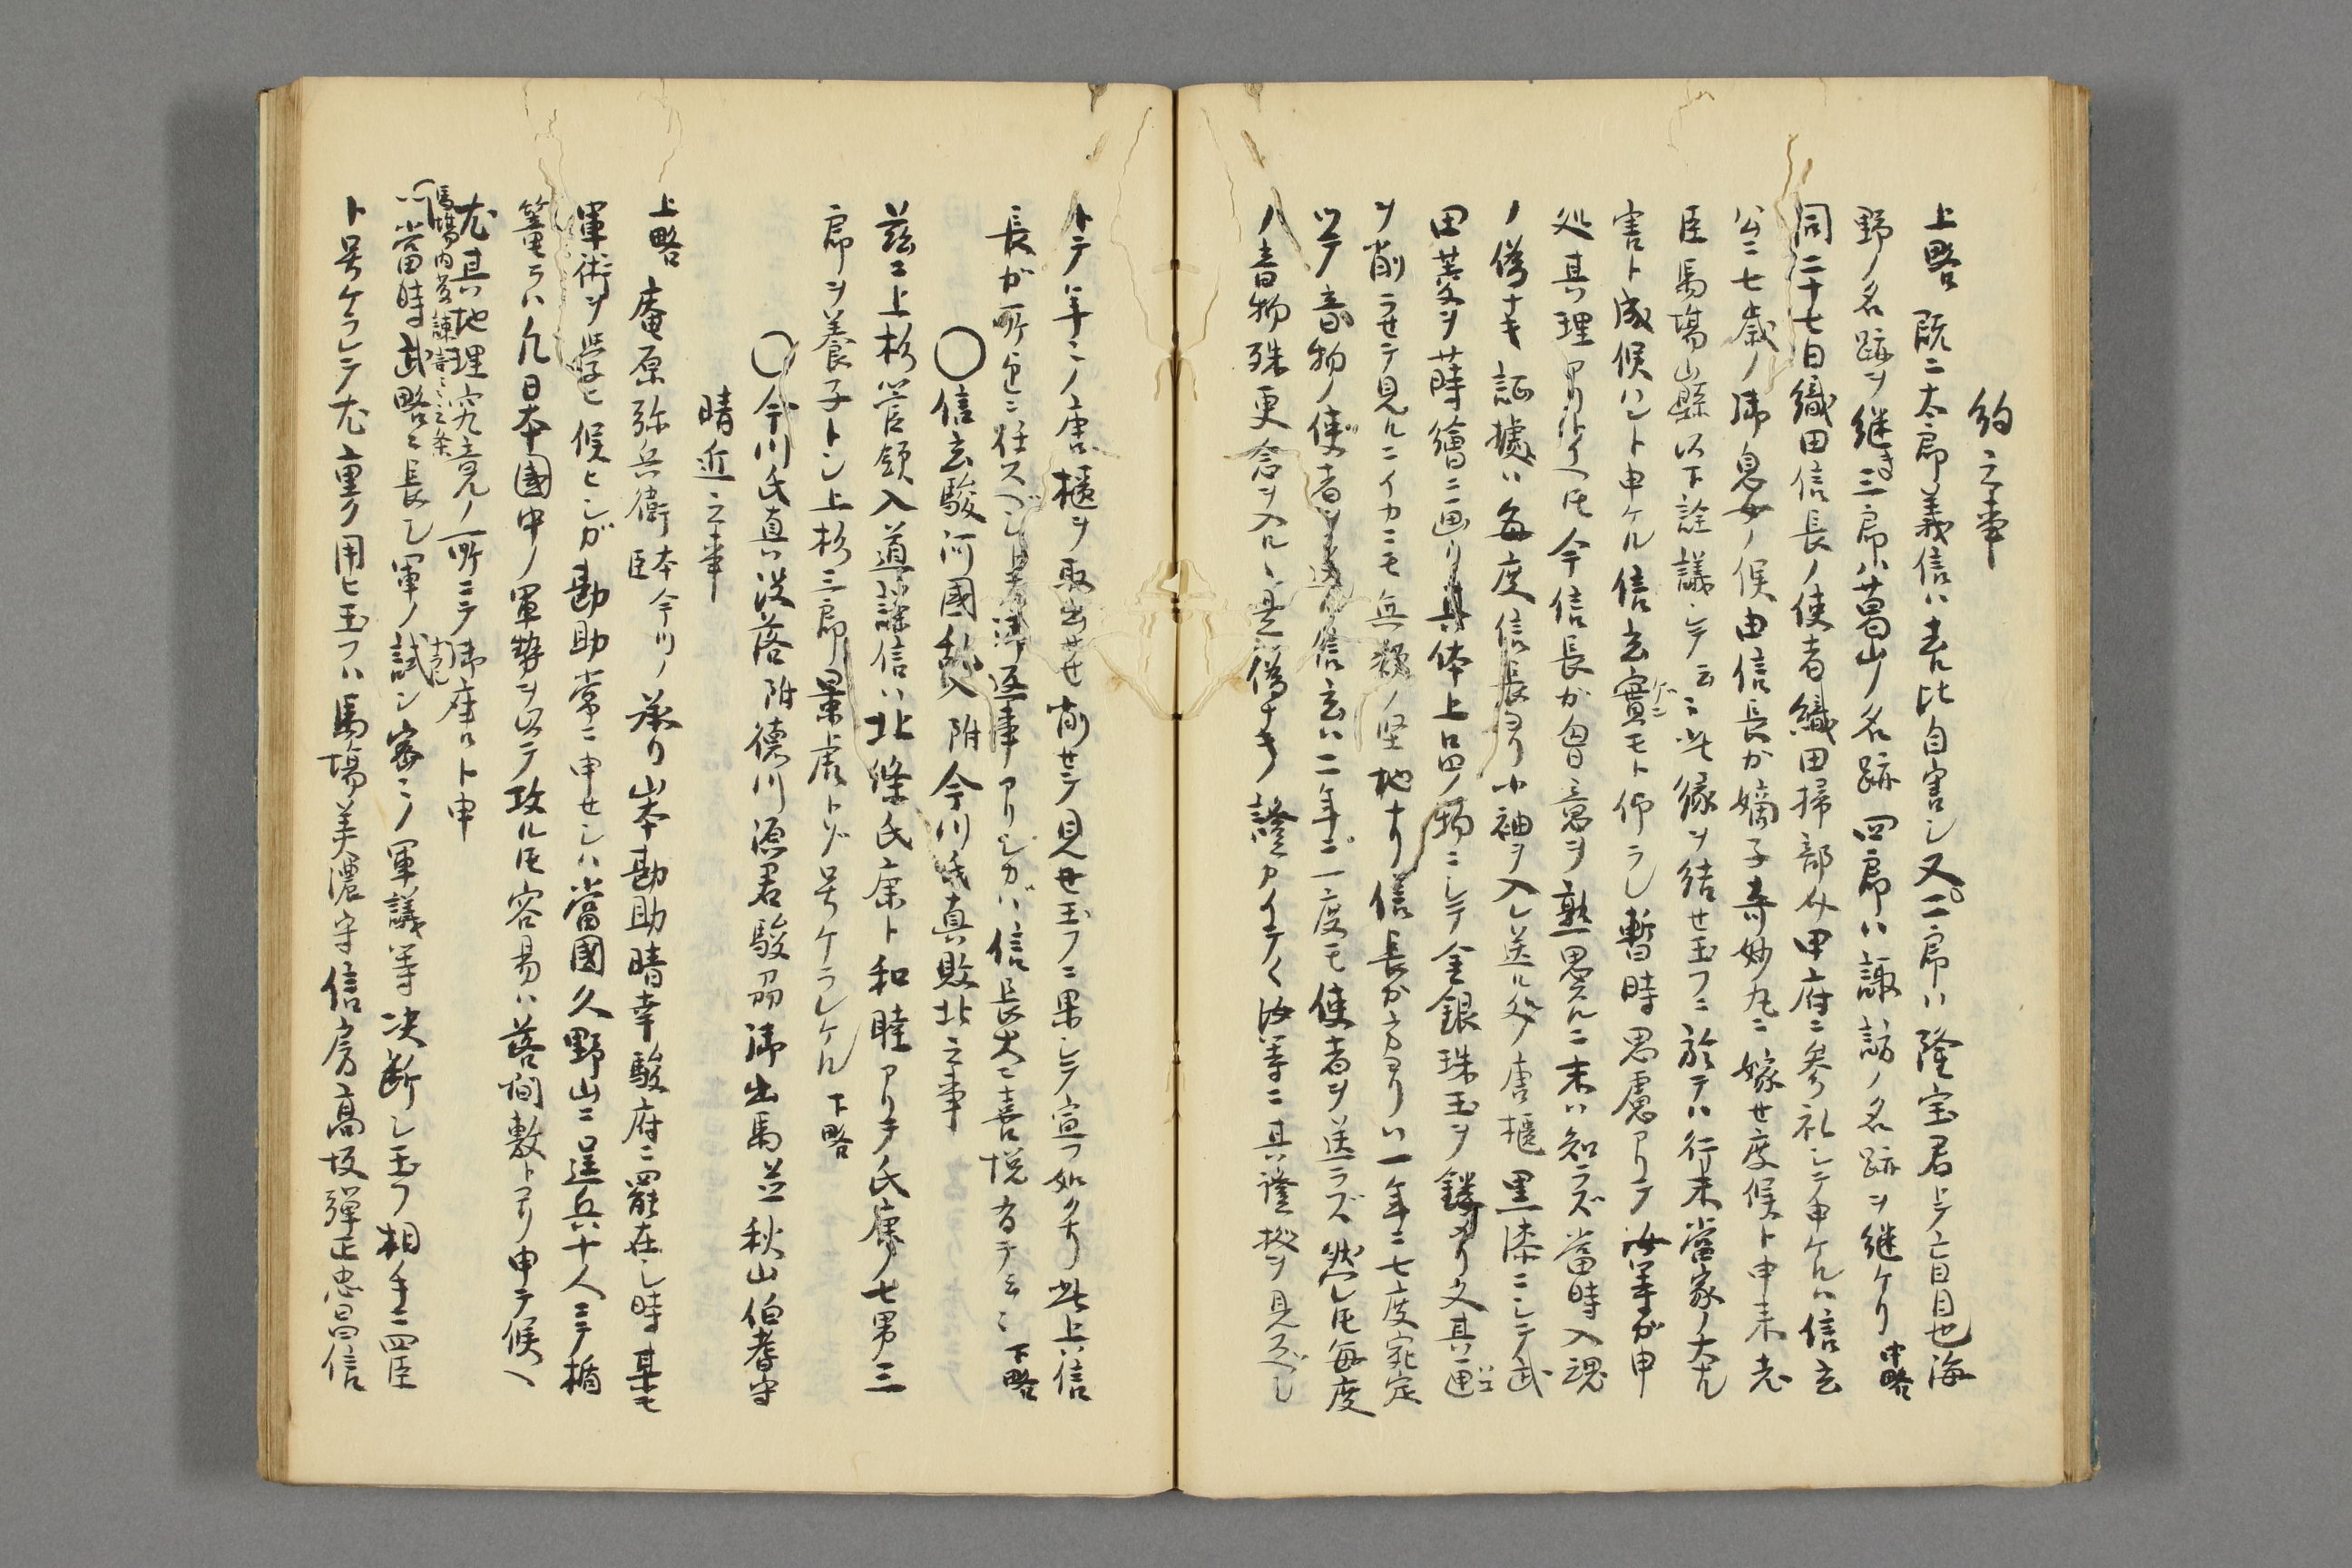 約之事
上略 既ニ太郎義信ハ去比自害シ又二郎ハ隆宝君トテ盲目也海
野ノ名跡ヲ継キ三郎ハ葛山ノ名跡四郎ハ諏訪ノ名跡ヲ継ケリ中略
同二十七日織田信長ノ使者織田掃部介甲府ニ参礼シテ申ケルハ信玄
公ニ七歳ノ御息女ノ候由信長カ嫡子奇妙丸ニ嫁セ度候ト申来老
臣馬場山縣以下詮議シテ云ニ此縁ヲ結セ玉フニ於テハ行末當家ノ大
害ト成候ハント申ケル信玄實ニモト仰ラレ暫時思慮アリテ汝等ガ申
処其理アリトイヘ𪜈今信長ガ意ヲ熟思フルニ末ハ知ラズ當時入魂
ノ偽ナキ証據ハ毎度信長ヨリ小袖ヲ入レ送ル処ノ唐櫃黒漆ニシテ武
田菱ヲ蒔繪ニ画リ其体上品ノ物ニシテ金銀珠玉ヲ鏤メリ又其
ヲ削ラセテ見ルニイカニモ無類ノ堅地ナリ信長カ方ヨリハ一年ニ七度宛定
ツテ音物ノ使者ヲ送リ信玄ハ二年ニ一度モ使者ヲ送ラズ然レ𪜈毎度
ノ音物殊更念ヲ入ル是偽ナキ證カイテ汝等ニ其證據ヲ見スベシ
トテ年々ノ唐櫃ヲ取出サセ削セテ見セ玉フニ果シテ宣フ如クナリ此上ハ信
長ガ所望ニ任スベシ御返事アリシカバ信長大ニ喜悦有テ云々下略
〇信玄駿河國乱入附今川氏真敗北之事
茲ニ上杉管領入道謙信ハ北條氏康ト和睦アリテ氏康ノ七男三
郎ヲ養子トシ上杉三郎景虎トゾ号ケラレケル下略
〇今川氏真没落附徳川源君駿刕御出馬並秋山伯耆守
晴近之事
上略 庵原弥兵衛本今川ノ臣承リ山本勘助晴幸駿府ニ罷在シ時某モ
軍術ヲ学ヒ候ヒシガ勘助常ニ申セシハ當國久野山ニ逞兵十人ニテ楯
篭ラハ凡日本國中ノ軍勢ヲ以テ攻ル𪜈容易ハ落間敷トアリ申テ候ヘ
尤其地理究竟ノ所ニテ御座ナント申
馬場内藤諫言ニ之条
當時武略ニ長シ軍ノ試シ密々ノ軍議等決断シ玉フ相手ニ四臣
ト号ケラレテ尤重ク用ヒ玉フハ馬場美濃守信房高坂弾正忠昌信